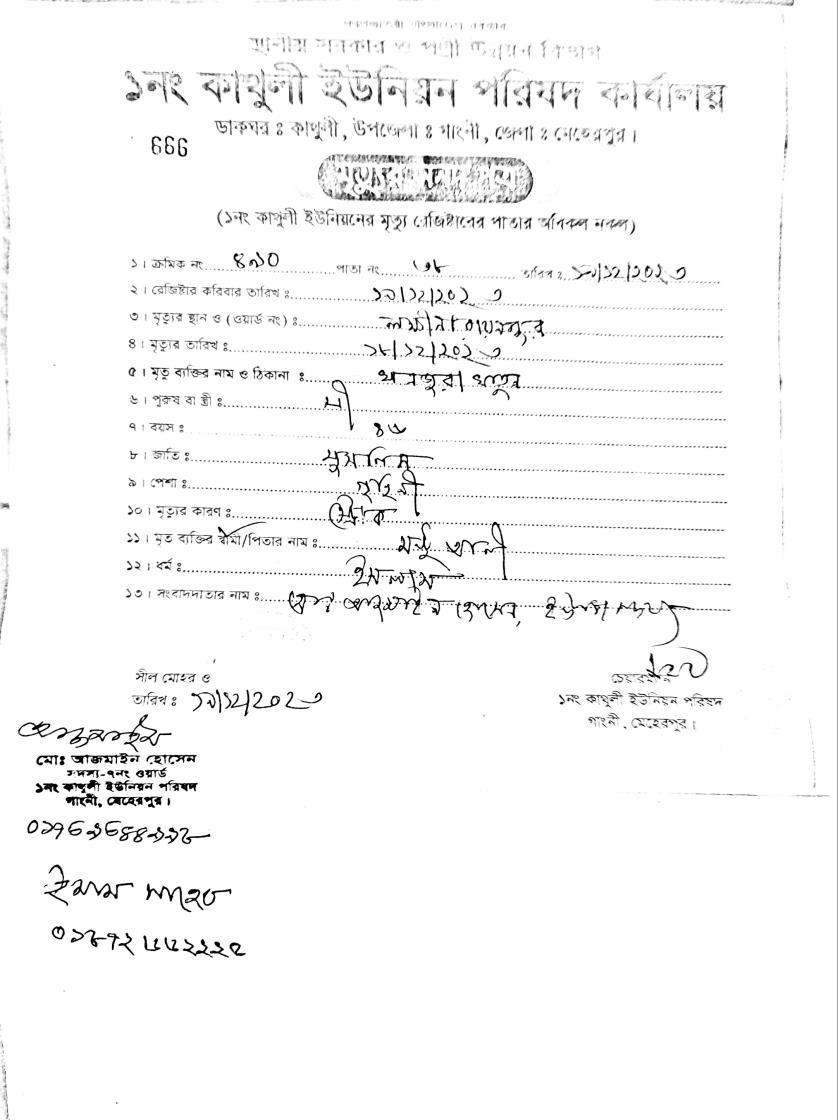 গণপ্রজাতন্ত্রী বাংলাদেশ সরকার
স্থানীয় সরকার ও পল্লী উন্নয়ন বিভাগ
১নং কাথুলী ইউনিয়ন পরিষদ কার্যালয়
ডাকঘর ঃ কাথুলী, উপজেলা ঃ গাংনী, জেলা ঃ মেহেরপুর।
666
মৃত্যুর সনদ পত্র
(১নং কাথুলী ইউনিয়নের মৃত্যু রেজিষ্টারের পাতার অবিকল নকল)
১। ক্রমিক নং পাতা নং তারিখ ঃ ১৯/১২/২০২৩
২। রেজিষ্টার করিবার তারিখ ঃ ১৯/১২/২০২৩
৩। মৃত্যুর স্থান ও (ওয়ার্ড নং) ঃ লক্ষীনারায়নপুর
৪। মৃত্যুর তারিখ ঃ ১৮/১২/২০২৩
৫। মৃত ব্যক্তির নাম ও ঠিকানা ঃ খাতুন
৬। পুরুষ বা স্ত্রী ঃ স্ত্রী
৭। বয়স ঃ
৮। জাতি ঃ মুসলিম
৯। পেশা ঃ গৃহিনী
১০। মৃত্যুর কারণ ঃ স্ট্রোক
১১। মৃত ব্যক্তির স্বামী/পিতার নাম ঃ মন্টু আলী
১২। ধর্ম ঃ ইসলাম
১৩। সংবাদদাতার নাম ঃ মোঃ আজমাইন হোসেন, ইউপি সদস্য
সীল মোহর ও
তারিখ ঃ ১৯/১২/২০২৩
চেয়ারম্যান
১নং কাথুলী ইউনিয়ন পরিষদ
গাংনী, মেহেরপুর।
মোঃ আজমাইন হোসেন
সদস্য-৭নং ওয়ার্ড
১নং কাথুলী ইউনিয়ন পরিষদ
গাংনী, মেহেরপুর।
ইমাম সাহেব